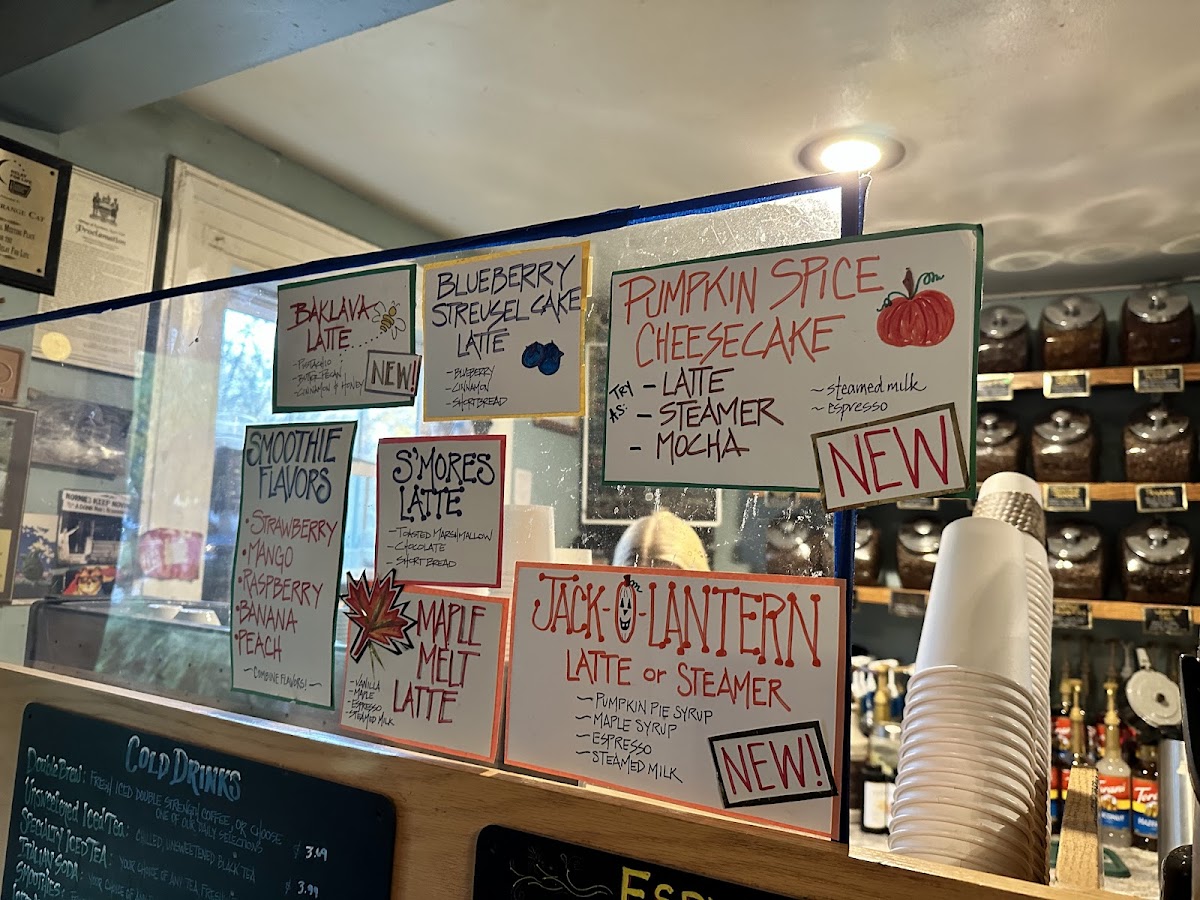 BAKLAVA
LATTE
- PISTACHIO
- BUTTER PECAN
- CINNAMON & HONEY
NEW!
BLUEBERRY
STREUSEL CAKE
LATTE
- BLUEBERRY
- CINNAMON
- SHORTBREAD
PUMPKIN SPICE
CHEESECAKE
TRY
AS:
- LATTE
- STEAMER
- MOCHA
~ steamed milk
~ espresso
NEW
SMOOTHIE
FLAVORS
• STRAWBERRY
• MANGO
• RASPBERRY
• BANANA
• PEACH
~ COMBINE FLAVORS! ~
S'MORES
LATTE
- TOASTED MARSHMALLOW
- CHOCOLATE
- SHORTBREAD
MAPLE
MELT
LATTE
- VANILLA
- MAPLE
- ESPRESSO
- STEAMED MILK
JACK-O-LANTERN
LATTE OR STEAMER
~ PUMPKIN PIE SYRUP
~ MAPLE SYRUP
~ ESPRESSO
~ STEAMED MILK
NEW!
COLD DRINKS
Double Brew: FRESH ICED DOUBLE STRENGTH COFFEE, OR CHOOSE
ONE OF OUR DAILY SELECTIONS
$ 3.69
Unsweetened Iced Tea: CHILLED, UNSWEETENED BLACK TEA
Specialty Iced Tea: YOUR CHOICE OF ANY TEA
$ 3.99
Italian Soda: YOUR CHOICE OF ANY
Smoothies:
Proclamation